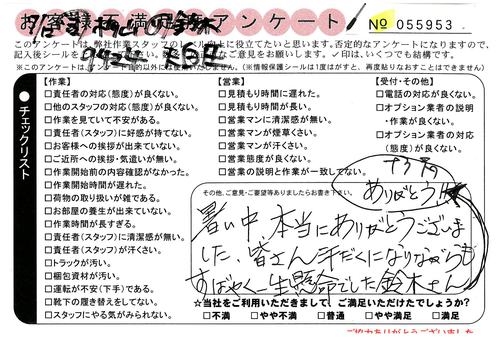 お客様ご満足度アンケート
No 055953
このアンケートは、弊社作業スタッフのレベル向上に役立てたいと思います。否定的なアンケートになりますので、
※このアンケートは、アンケート目的以外には使用いたしません。(※情報保護シールは1度はがすと、再度貼りなおすことはできません)
チェックリスト
【作業】
□責任者の対応(態度)が良くない。
□他のスタッフの対応(態度)が良くない。
□作業を見ていて不安がある。
□責任者(スタッフ)に好感が持てない。
□お客様への挨拶が出来ていない。
□ご近所への挨拶・気遣いが無い。
□作業開始前の内容確認がなかった。
□作業開始時間が遅れた。
□荷物の取り扱いが雑である。
□お部屋の養生が出来ていない。
□作業時間が長すぎる。
□責任者(スタッフ)に清潔感が無い。
□責任者(スタッフ)が汗くさい。
□トラックが汚い。
□梱包資材が汚い。
□運転が不安(下手)である。
□靴下の履き替えをしてない。
□スタッフにやる気がみられない。
【営業】
□見積もりに遅れた。
□見積もり時間が長い。
□営業マンに清潔感が無い。
□営業マンが煙草くさい。
□営業マンが汗くさい。
□営業態度が良くない。
□営業の説明と作業が一致してない。
【受付・その他】
□電話の対応が良くない。
□オプション業者の説明
・作業が良くない。
□オプション業者の対応
(態度)が良くない。
その他、ご意見・ご要望等ありましたらお書き下さい。
ありがとう!!
暑い中、本当にありがとうございま
した、皆さん汗だくになりながらも
すばやく一生懸命でした鈴木さん
☆当社をご利用いただきまして、ご満足いただけたでしょうか?
□不満 □やや不満 □普通 □やや満足 □満足
ご協力ありがとうございました